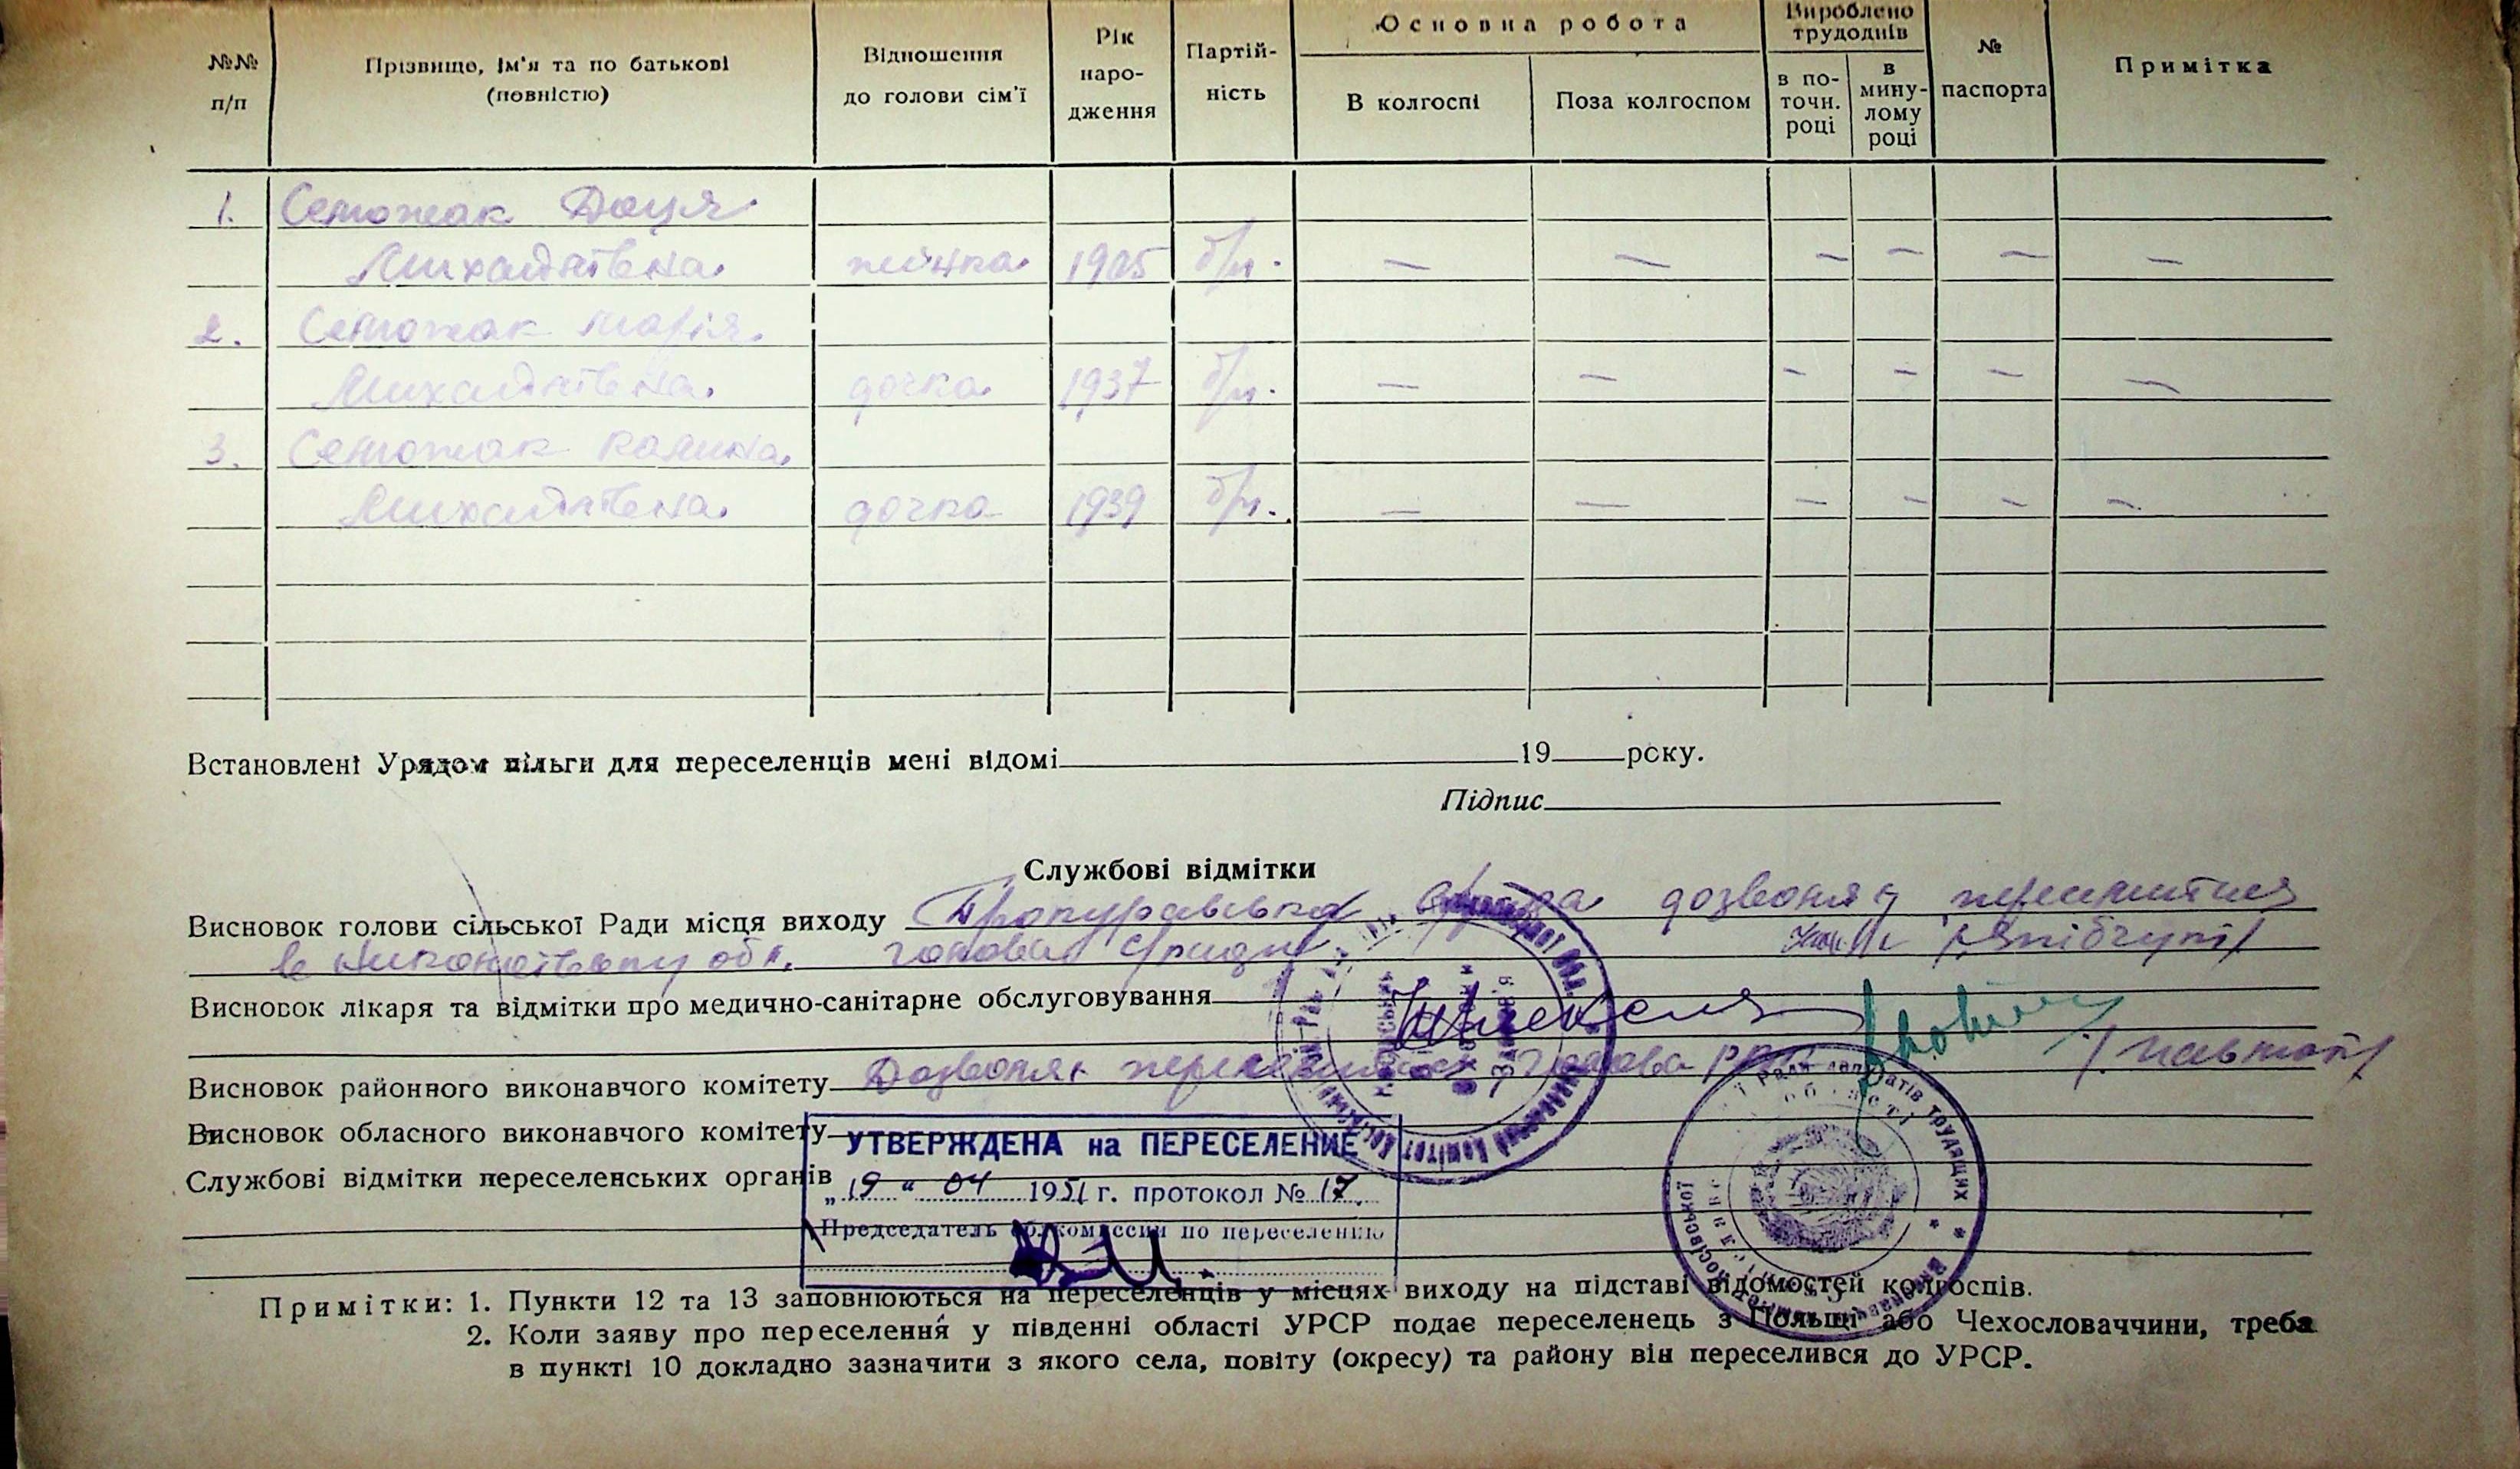 №№ п/п
Прізвище, ім'я та по батькові (повністю)
Відношення до голови сім'ї
Рік народження
Партійність
Основна робота
В колгоспі
Поза колгоспом
Вироблено трудоднів
в поточн. році
в минулому році
№ паспорта
Примітка
1. Семожак Доця
Михайлівна жінка 1905 б/п. — — — — — —
2. Семожак Марія
Михайлівна дочка 1937 б/п. — — — — — —
3. Семожак Калина
Михайлівна дочка 1939 б/п. — — — — — —
Встановлені Урядом пільги для переселенців мені відомі 19 року.
Підпис
Службові відмітки
Висновок голови сільської Ради місця виходу дозволяє
в обл. голова
Висновок лікаря та відмітки про медично-санітарне обслуговування
Висновок районного виконавчого комітету Дозволяє Голова
Висновок обласного виконавчого комітету
УТВЕРЖДЕНА на ПЕРЕСЕЛЕНИЕ
Службові відмітки переселенських органів
„19" 04 1951 г. протокол № 17
Председатель облкомиссии по переселению
Ради депутатів трудящих
області
Примітки: 1. Пункти 12 та 13 заповнюються на переселенців у місцях виходу на підставі відомостей колгоспів.
2. Коли заяву про переселення у південні області УРСР подає переселенець з Польщі або Чехословаччини, треба
в пункті 10 докладно зазначити з якого села, повіту (окресу) та району він переселився до УРСР.